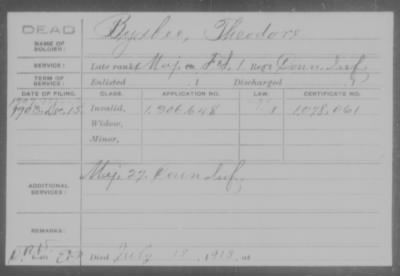 DEAD
NAME OF SOLDIER: Byxbee, Theodore
SERVICE: Late rank, Maj. F.S. 1 Reg't Conn. Inf.
TERM OF SERVICE: Enlisted , 1 Discharged , 1
DATE OF FILING. CLASS. APPLICATION NO. LAW. CERTIFICATE NO.
Dec. 15. Invalid, 1,306,648 1,078,061
Widow,
Minor,
ADDITIONAL SERVICES: Maj. 27. Conn Inf.
REMARKS:
Died July 1918, at